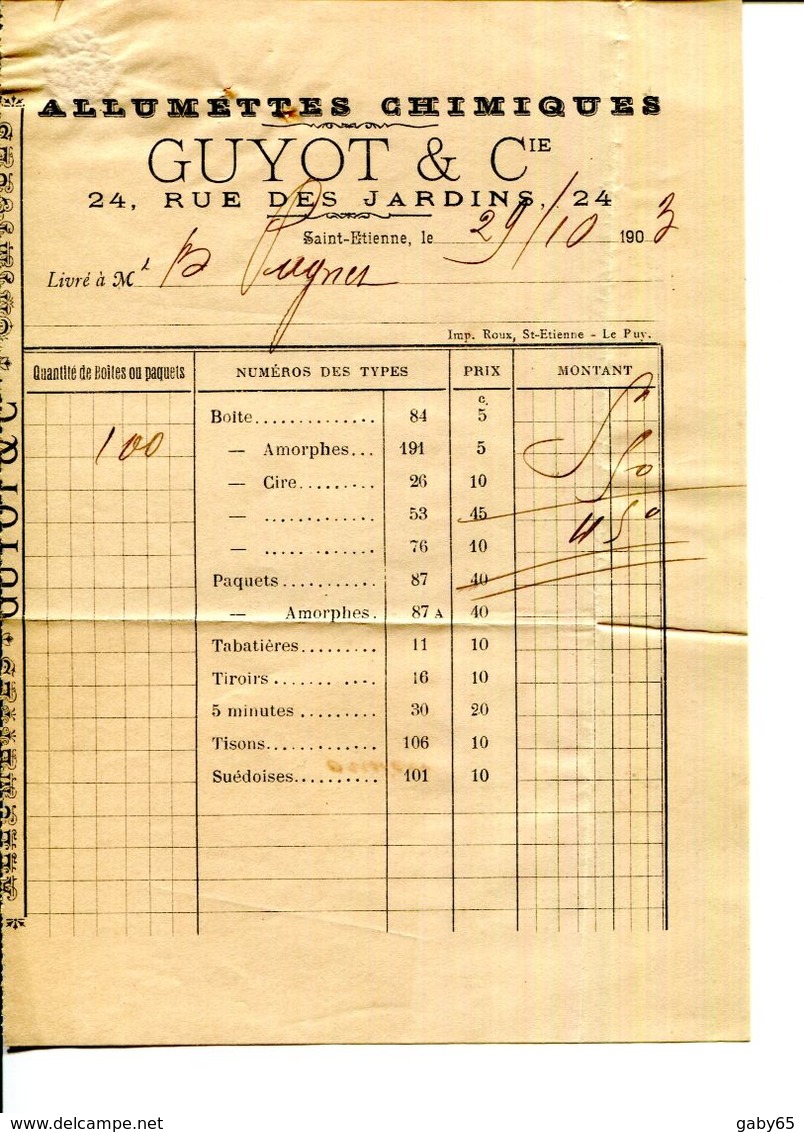 ALLUMETTES CHIMIQUES
GUYOT & CIE
24, RUE DES JARDINS, 24
Saint-Etienne, le 29/10 1903
Livré à Mr
Imp. Roux, St-Etienne - Le Puy.
Quantité de Boîtes ou paquets NUMÉROS DES TYPES PRIX MONTANT
c.
Boîte.............. 84 5 5 "
100 — Amorphes... 191 5 50
— Cire......... 26 10
— ............. 53 45 4 50
— ............. 76 10
Paquets........... 87 40
— Amorphes. 87 A 40
Tabatières......... 11 10
Tiroirs....... .... 16 10
5 minutes ......... 30 20
Tisons............. 106 10
Suédoises.......... 101 10
ALLUMETTES • GUYOT & C • CHIMIQUES
www.delcampe.net
gaby65